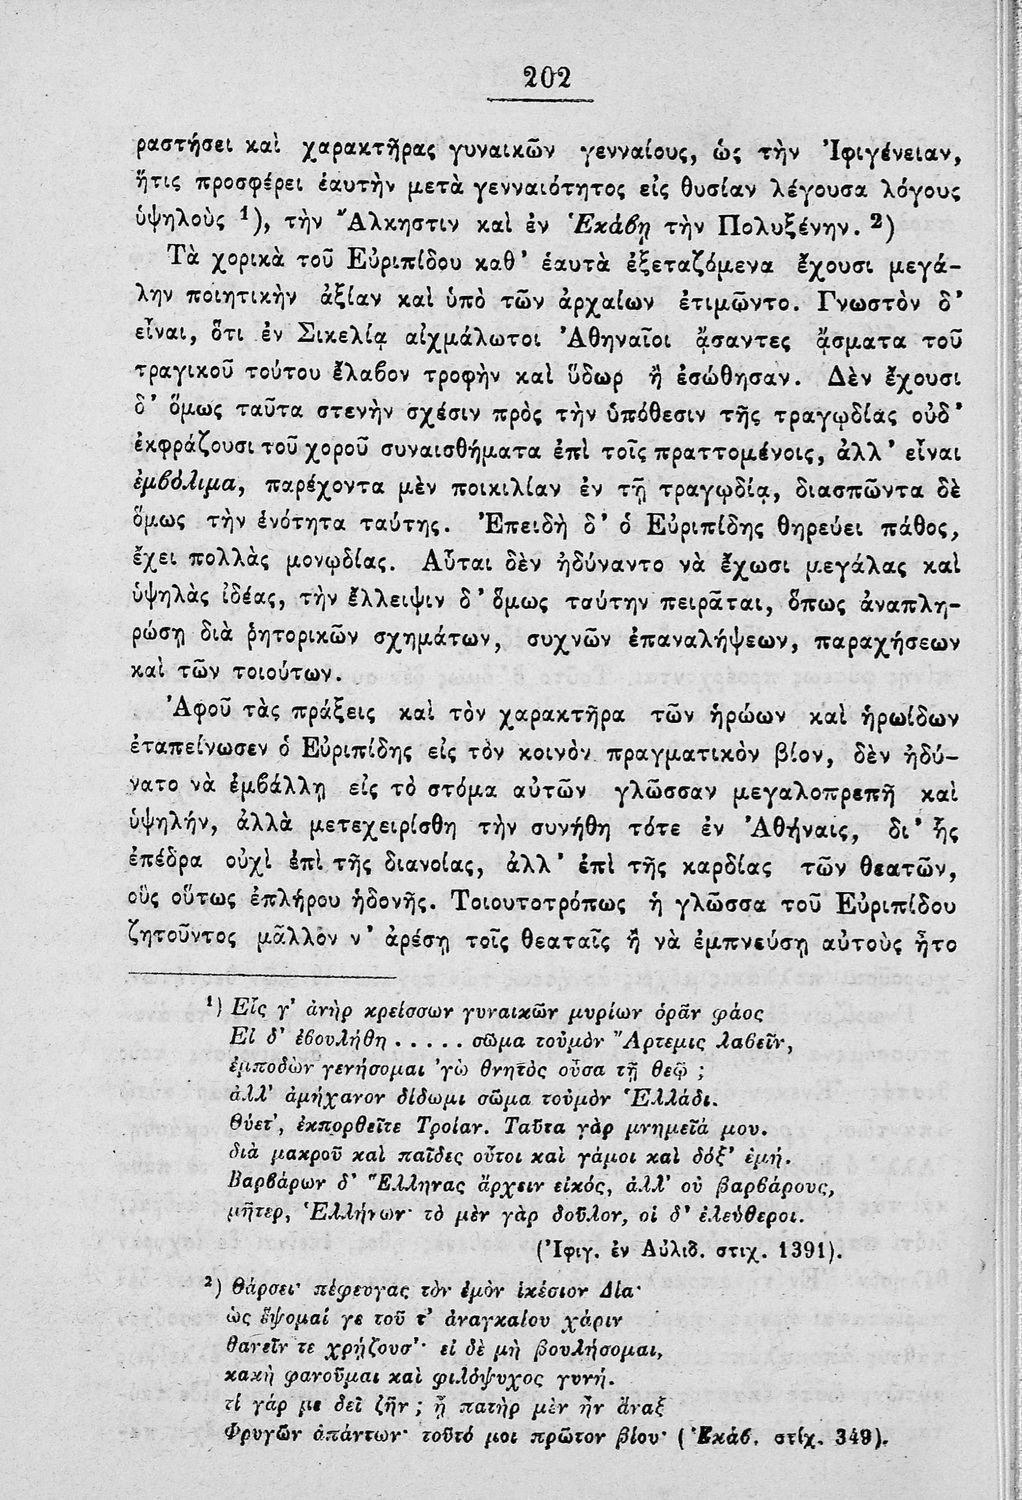 202
ραστήσει καὶ χαρακτῆρας γυναικῶν γενναίους, ὡς τὴν Ἰφιγένειαν,
ἥτις προσφέρει ἑαυτὴν μετὰ γενναιότητος εἰς θυσίαν λέγουσα λόγους
ὑψηλοὺς ¹), τὴν Ἄλκηστιν καὶ ἐν Ἑκάβῃ τὴν Πολυξένην. ²)
Τὰ χορικὰ τοῦ Εὐριπίδου καθ’ ἑαυτὰ ἐξεταζόμενα ἔχουσι μεγά-
λην ποιητικὴν ἀξίαν καὶ ὑπὸ τῶν ἀρχαίων ἐτιμῶντο. Γνωστὸν δ’
εἶναι, ὅτι ἐν Σικελίᾳ αἰχμάλωτοι Ἀθηναῖοι ᾄσαντες ᾄσματα τοῦ
τραγικοῦ τούτου ἔλαβον τροφὴν καὶ ὕδωρ ἢ ἐσώθησαν. Δὲν ἔχουσι
δ’ ὅμως ταῦτα στενὴν σχέσιν πρὸς τὴν ὑπόθεσιν τῆς τραγῳδίας οὐδ’
ἐκφράζουσι τοῦ χοροῦ συναισθήματα ἐπὶ τοῖς πραττομένοις, ἀλλ’ εἶναι
ἐμβόλιμα, παρέχοντα μὲν ποικιλίαν ἐν τῇ τραγῳδίᾳ, διασπῶντα δὲ
ὅμως τὴν ἑνότητα ταύτης. Ἐπειδὴ δ’ ὁ Εὐριπίδης θηρεύει πάθος,
ἔχει πολλὰς μονῳδίας. Αὗται δὲν ἠδύναντο νὰ ἔχωσι μεγάλας καὶ
ὑψηλὰς ἰδέας, τὴν ἔλλειψιν δ’ ὅμως ταύτην πειρᾶται, ὅπως ἀναπλη-
ρώσῃ διὰ ῥητορικῶν σχημάτων, συχνῶν ἐπαναλήψεων, παραχήσεων
καὶ τῶν τοιούτων.
Ἀφοῦ τὰς πράξεις καὶ τὸν χαρακτῆρα τῶν ἡρώων καὶ ἡρωίδων
ἐταπείνωσεν ὁ Εὐριπίδης εἰς τὸν κοινὸν πραγματικὸν βίον, δὲν ἠδύ-
νατο νὰ ἐμβάλλῃ εἰς τὸ στόμα αὐτῶν γλῶσσαν μεγαλοπρεπῆ καὶ
ὑψηλήν, ἀλλὰ μετεχειρίσθη τὴν συνήθη τότε ἐν Ἀθήναις, δι’ ἧς
ἐπέδρα οὐχὶ ἐπὶ τῆς διανοίας, ἀλλ’ ἐπὶ τῆς καρδίας τῶν θεατῶν,
οὓς οὕτως ἐπλήρου ἡδονῆς. Τοιουτοτρόπως ἡ γλῶσσα τοῦ Εὐριπίδου
ζητοῦντος μᾶλλον ν’ ἀρέσῃ τοῖς θεαταῖς ἢ νὰ ἐμπνεύσῃ αὐτοὺς ἦτο
¹) Εἷς γ’ ἀνὴρ κρείσσων γυναικῶν μυρίων ὁρᾶν φάος
Εἰ δ’ ἐβουλήθη ..... σῶμα τοὐμὸν Ἄρτεμις λαβεῖν,
ἐμποδὼν γενήσομαι ’γὼ θνητὸς οὖσα τῇ θεῷ ;
ἀλλ’ ἀμήχανον δίδωμι σῶμα τοὐμὸν Ἑλλάδι.
Θύετ’, ἐκπορθεῖτε Τροίαν. Ταῦτα γὰρ μνημεῖά μου.
διὰ μακροῦ καὶ παῖδες οὗτοι καὶ γάμοι καὶ δόξ’ ἐμή.
Βαρβάρων δ’ Ἕλληνας ἄρχειν εἰκός, ἀλλ’ οὐ βαρβάρους,
μῆτερ, Ἑλλήνων· τὸ μὲν γὰρ δοῦλον, οἱ δ’ ἐλεύθεροι.
(Ἰφιγ. ἐν Αὐλιδ. στιχ. 1391).
²) Θάρσει· πέφευγας τὸν ἐμὸν ἱκέσιον Δία·
ὡς ἕψομαί γε τοῦ τ’ ἀναγκαίου χάριν
θανεῖν τε χρῄζουσ’· εἰ δὲ μὴ βουλήσομαι,
κακὴ φανοῦμαι καὶ φιλόψυχος γυνή.
τί γάρ με δεῖ ζῆν ; ᾗ πατὴρ μὲν ἦν ἄναξ
Φρυγῶν ἁπάντων· τοῦτό μοι πρῶτον βίου· (Ἑκάβ. στίχ. 349).